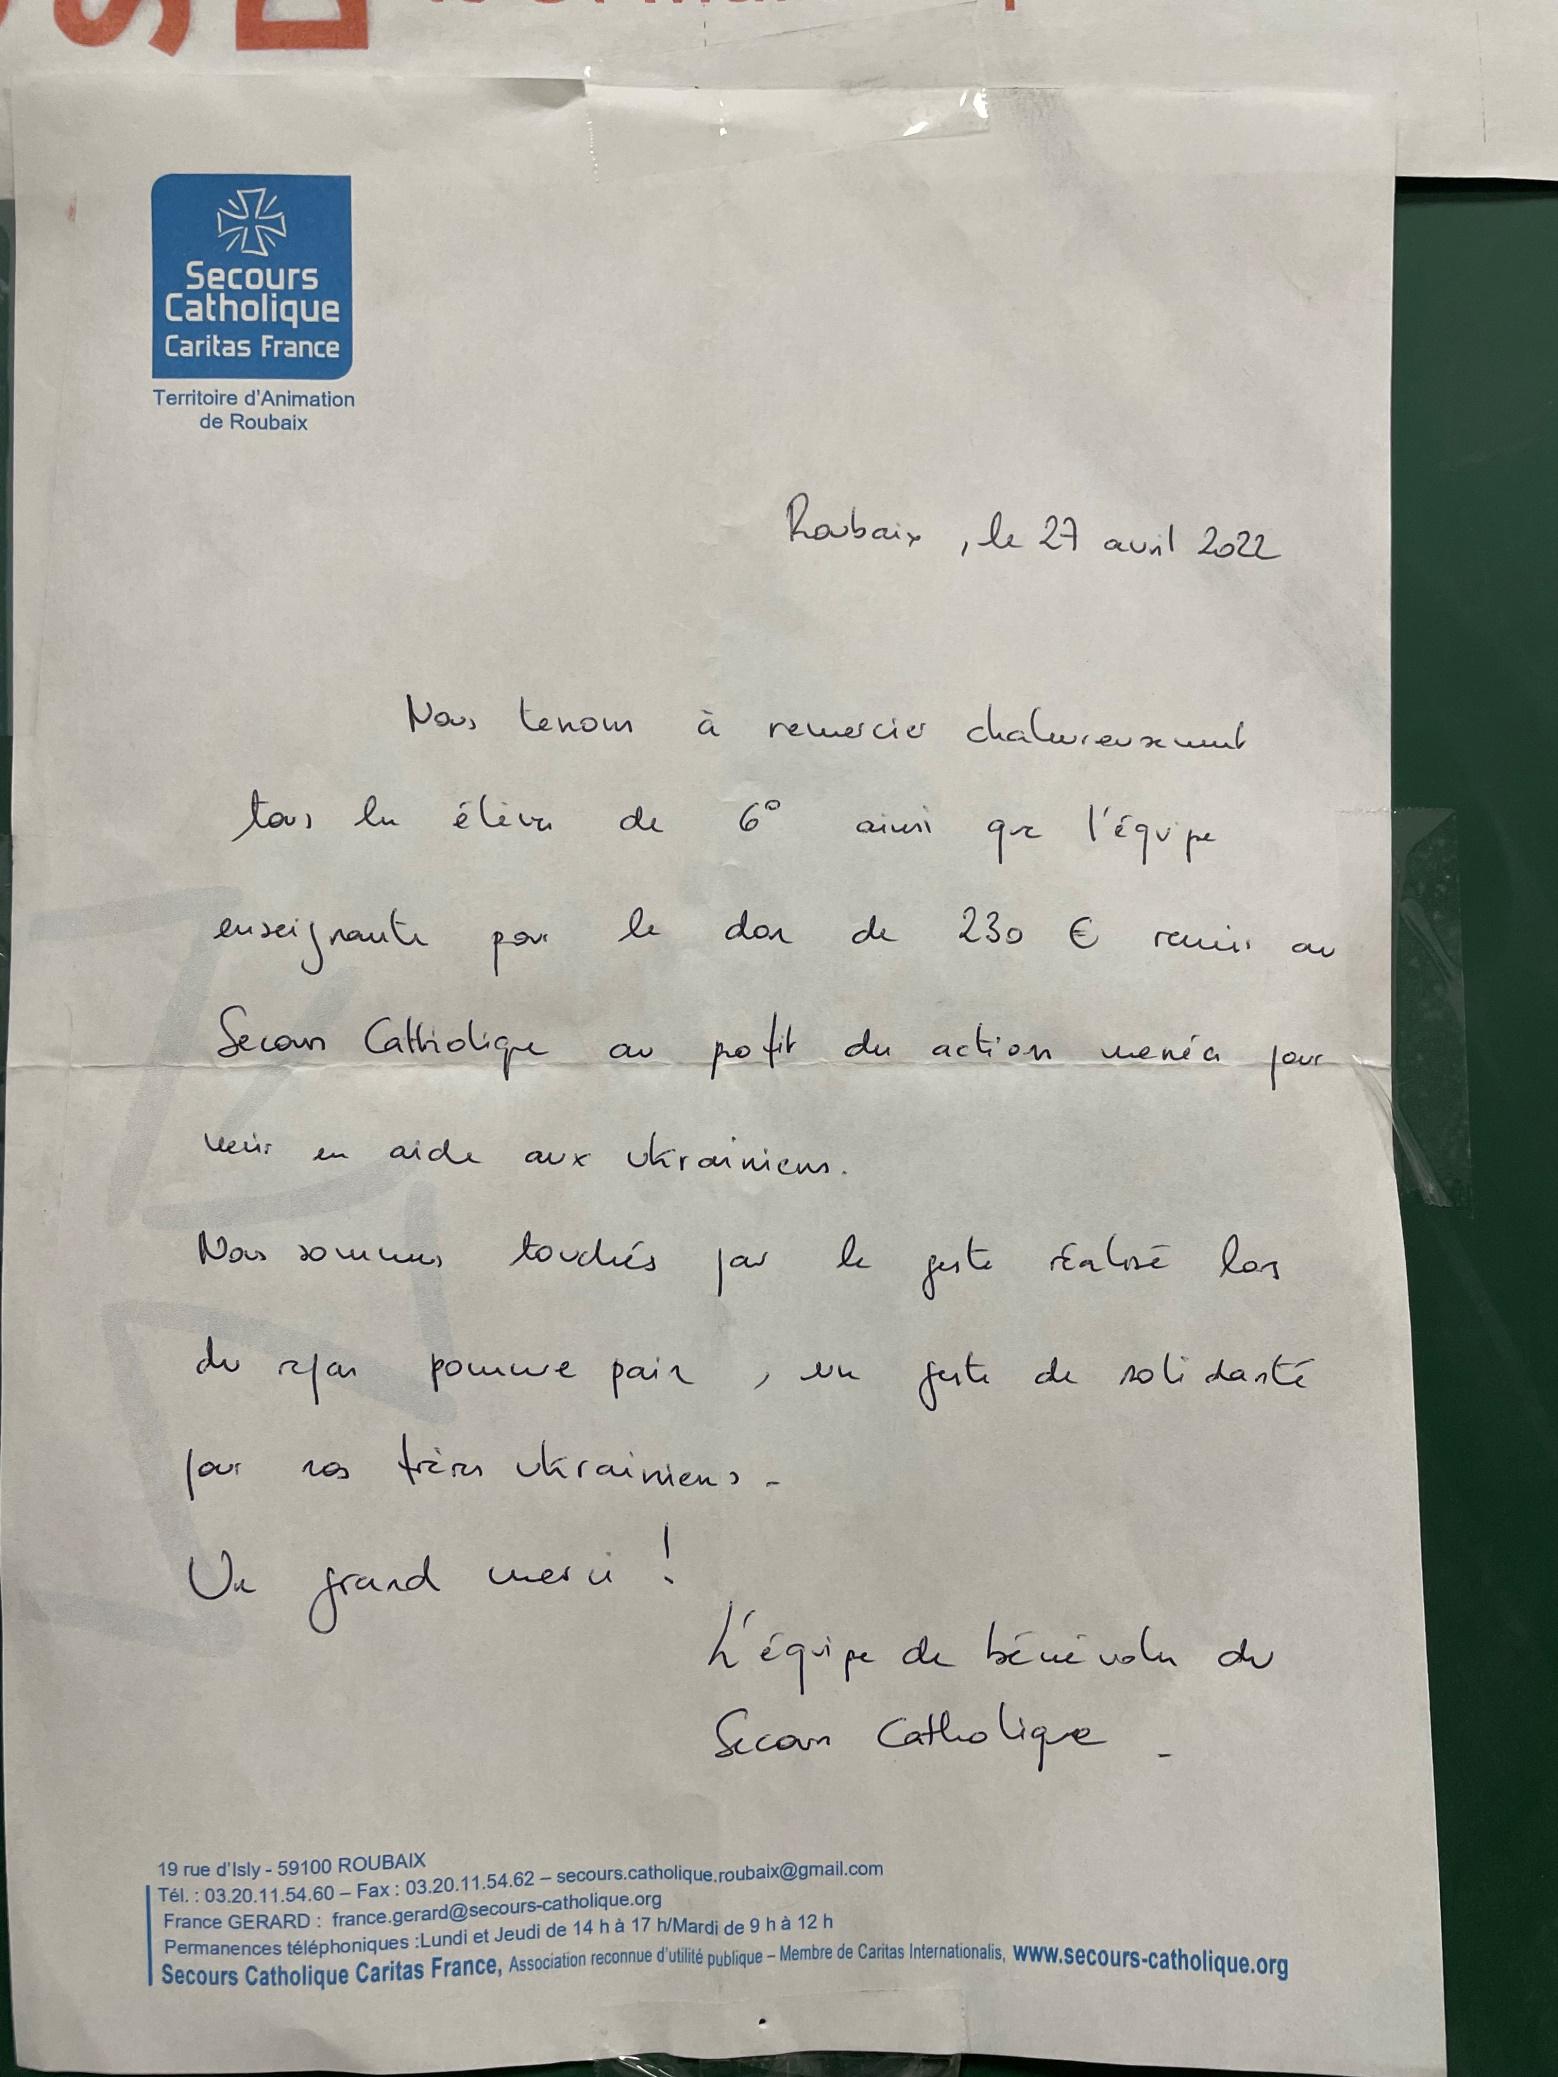 Secours
Catholique
Caritas France
Territoire d'Animation
de Roubaix
Roubaix, le 27 avril 2022
Nous tenons à remercier chaleureusement
tous les élèves de 6° ainsi que l'équipe
enseignante pour le don de 230 € remis au
Secours Catholique au profit des action menées pour
venir en aide aux ukrainiens.
Nous sommes touchés par le geste réalisé lors
du repas pomme pain, un geste de solidarité
pour nos frères ukrainiens.
Un grand merci !
L'équipe de bénévoles du
Secours Catholique.
19 rue d'Isly - 59100 ROUBAIX
Tél. : 03.20.11.54.60 – Fax : 03.20.11.54.62 – secours.catholique.roubaix@gmail.com
France GERARD : france.gerard@secours-catholique.org
Permanences téléphoniques :Lundi et Jeudi de 14 h à 17 h/Mardi de 9 h à 12 h
Secours Catholique Caritas France, Association reconnue d'utilité publique – Membre de Caritas Internationalis, www.secours-catholique.org